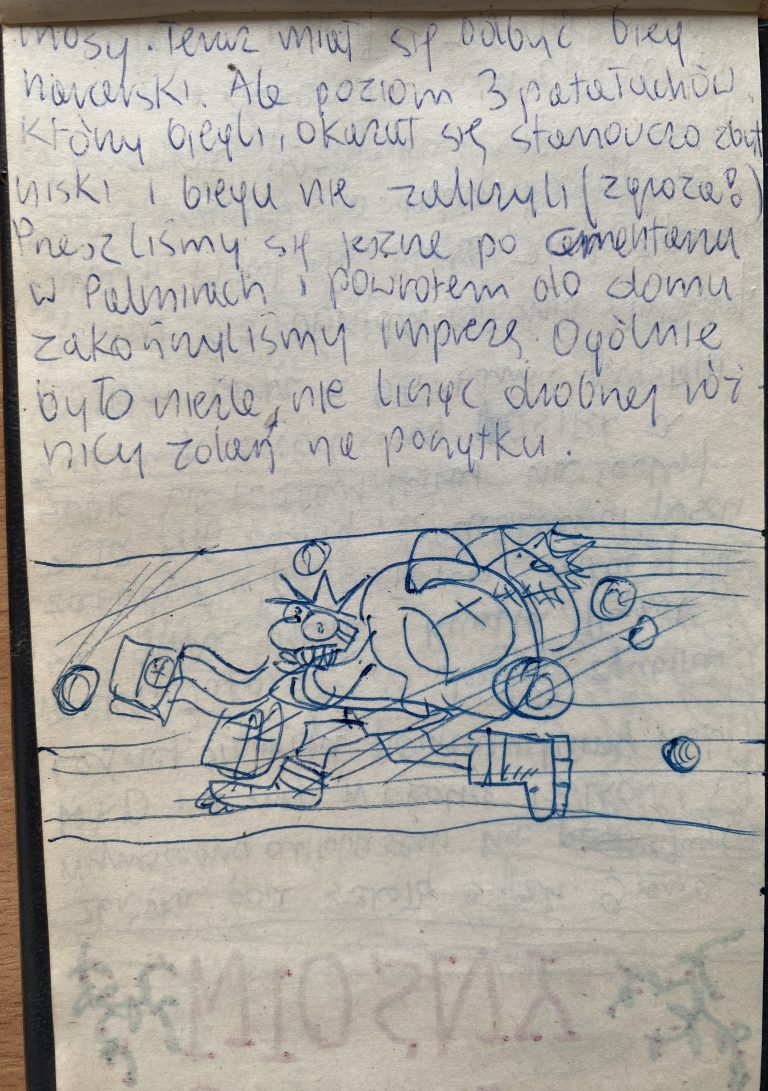 mosy. Teraz miał się odbyć bieg
harcerski. Ale poziom 3 patałachów,
który biegli, okazał się stanowczo zbyt
niski i biegu nie zaliczyli (zgroza!)
Przeszliśmy się jeszcze po cmentarzu
w Palmirach i powrotem do domu
zakończyliśmy imprezę. Ogólnie
było nieźle, nie licząc drobnej róż
nicy zdań na początku.